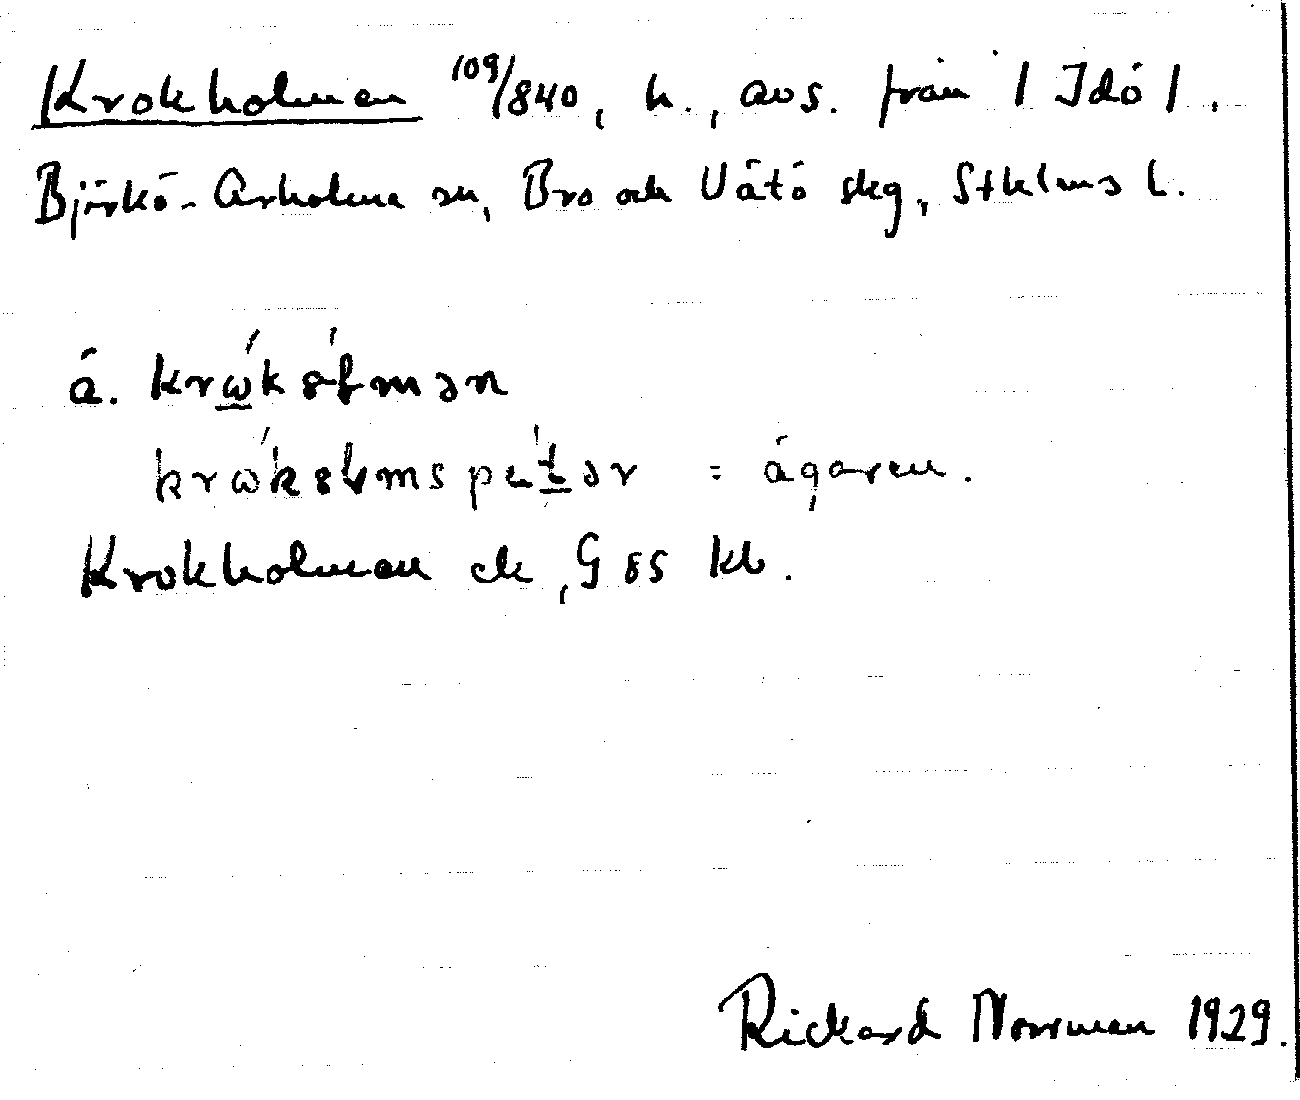 Krokholmen 109/840, h., avs. från / Idö /.
Björkö-Arholma sn, Bro och Vätö skg, Sthlms l.
å. krώ̲k ɷ́lmən
krώkɷlms pèt̲ər = ägaren.
Krokholmen ek, G 85 kb.
Rickard Norrman 1929.